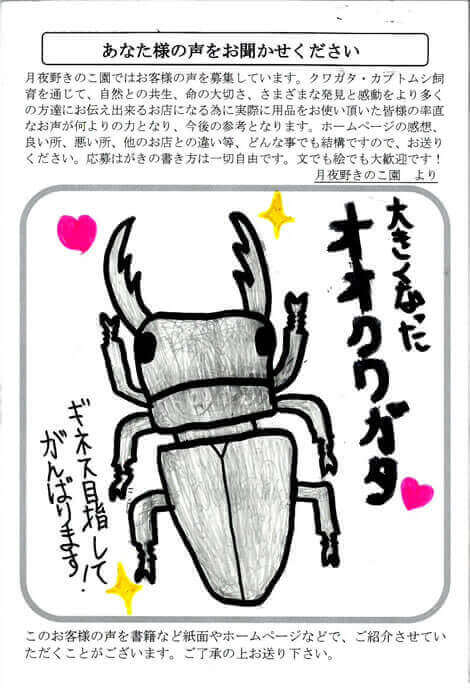 あなた様の声をお聞かせください
月夜野きのこ園ではお客様の声を募集しています。クワガタ・カブトムシ飼
育を通じて、自然との共生、命の大切さ、さまざまな発見と感動をより多く
の方達にお伝え出来るお店になる為に実際に用品をお使い頂いた皆様の率直
なお声が何よりの力となり、今後の参考となります。ホームページの感想、
良い所、悪い所、他のお店との違い等、どんな事でも結構ですので、お送り
ください。応募はがきの書き方は一切自由です。文でも絵でも大歓迎です！
月夜野きのこ園　より
大きくなった
オオクワガタ
ギネス目指して
がんばります！
このお客様の声を書籍など紙面やホームページなどで、ご紹介させてい
ただくことがございます。ご了承の上お送り下さい。